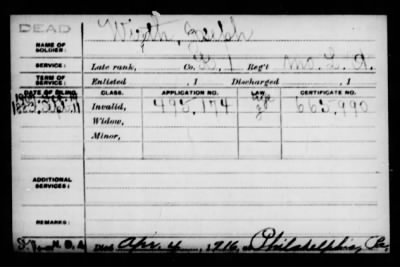 DEAD
NAME OF SOLDIER:
SERVICE: Late rank, Co. Reg't
TERM OF SERVICE: Enlisted , 1 Discharged , 1
DATE OF FILING. CLASS. APPLICATION NO. LAW. CERTIFICATE NO.
Invalid, 495,174 665,990
Widow,
Minor,
ADDITIONAL SERVICES:
REMARKS:
Died Apr. 4, 1916, at Philadelphia, Pa.